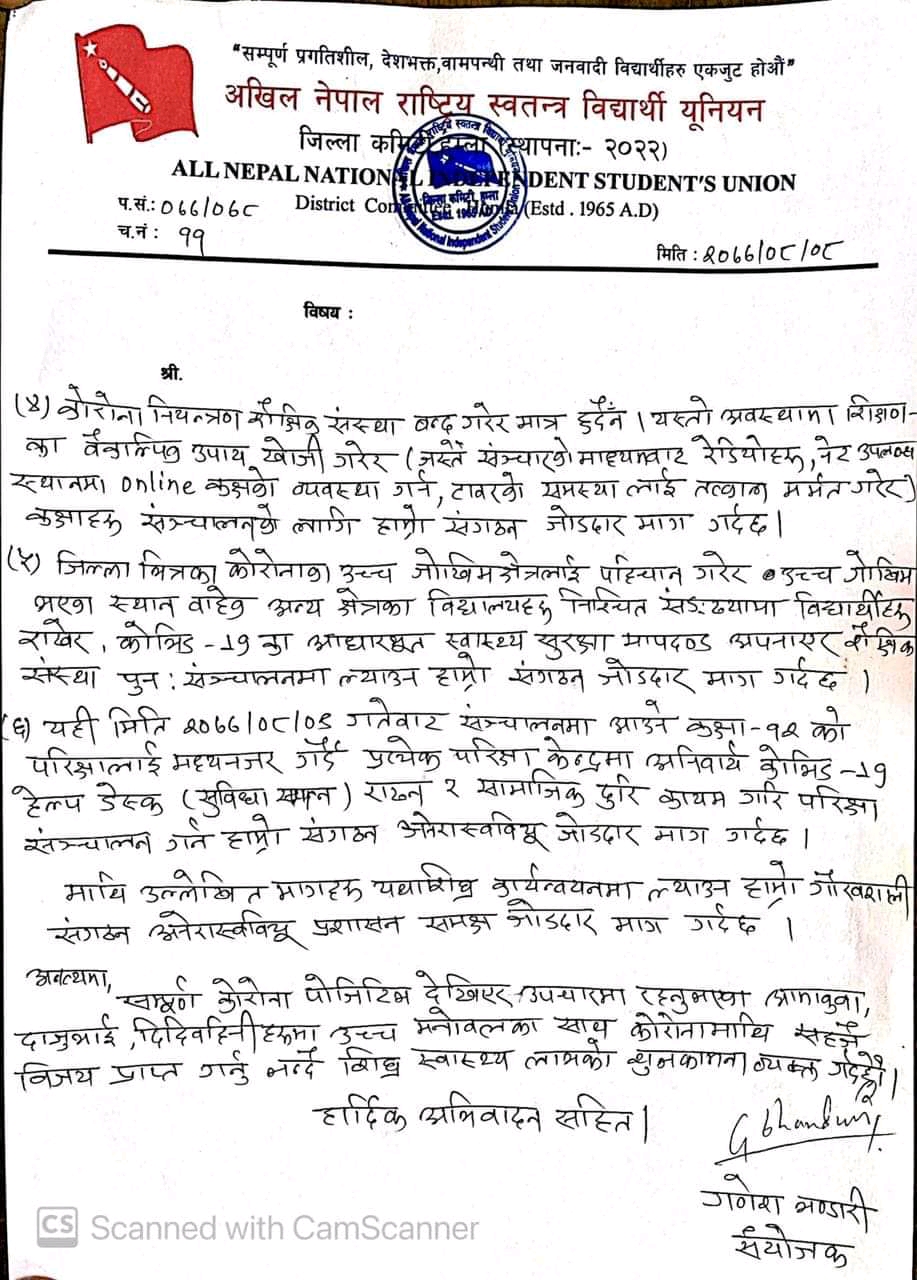 "सम्पूर्ण प्रगतिशील, देशभक्त,वामपन्थी तथा जनवादी विद्यार्थीहरु एकजुट होऔं"
अखिल नेपाल राष्ट्रिय स्वतन्त्र विद्यार्थी यूनियन
जिल्ला कमिटी हुम्ला (स्थापनाः- २०२२)
ALL NEPAL NATIONAL INDEPENDENT STUDENT'S UNION
District Committee Humla (Estd . 1965 A.D)
प.सं.: ०७७/०७८
च.नं : ११
मिति : २०७७/०८/०८
विषय :
श्री.
(४) कोरोना नियन्त्रण शैक्षिक संस्था बन्द गरेर मात्र हुदैन । यस्तो अवस्थामा शिक्षण-
का वैकल्पिक उपाय खोजी गरेर (जस्तै संञ्चारको माध्यमबाट रेडियोहरू, नेट उपलब्ध
स्थानमा online कक्षाको व्यवस्था गर्न, टावरको समस्या लाई तत्काल मर्मत गरेर)
कक्षाहरू संञ्चालनको लागि हाम्रो संगठन जोडदार माग गर्दछ ।
(५) जिल्ला भित्रका कोरोनाका उच्च जोखिम क्षेत्रलाई पहिचान गरेर उच्च जोखिम
भएका स्थान वाहेक अन्य क्षेत्रका विद्यालयहरू निश्चित संङ्ख्यामा विद्यार्थीहरू
राखेर, कोभिड -19 का आधारभूत स्वास्थ्य सुरक्षा मापदण्ड अपनाएर शैक्षिक
संस्था पुन: संञ्चालनमा ल्याउन हाम्रो संगठन जोडदार माग गर्दछ ।
(६) यही मिति २०७७/०८/०९ गतेवाट संञ्चालनमा आउने कक्षा-१२ को
परिक्षालाई मध्यनजर गर्दै प्रत्येक परिक्षा केन्द्रमा अनिवार्य कोभिड -19
हेल्प डेस्क (सुविधा सम्पन्न) राख्न र सामाजिक दुरि कायम गरि परिक्षा
संञ्चालन गर्न हाम्रो संगठन अनेरास्ववियू जोडदार माग गर्दछ ।
माथि उल्लेखित मागहरू यथाशिघ्र कार्यन्वयनमा ल्याउन हाम्रो गौरवशाली
संगठन अनेरास्ववियू प्रशासन समक्ष जोडदार माग गर्दछ ।
सम्पूर्ण कोरोना पोजिटिभ देखिएर उपचारमा रहनुभएका आमाबुवा,
दाजुभाई, दिदिवहिनीहरूमा उच्च मनोवलका साथ कोरोनामाथि सहजै
विजय प्राप्त गर्नु भन्दै शिघ्र स्वास्थ्य लाभको शुभकामना व्यक्त गर्दछौ ।
हार्दिक अभिवादन सहित ।
G Bhandari
गणेश भण्डारी
संयोजक
CS Scanned with CamScanner